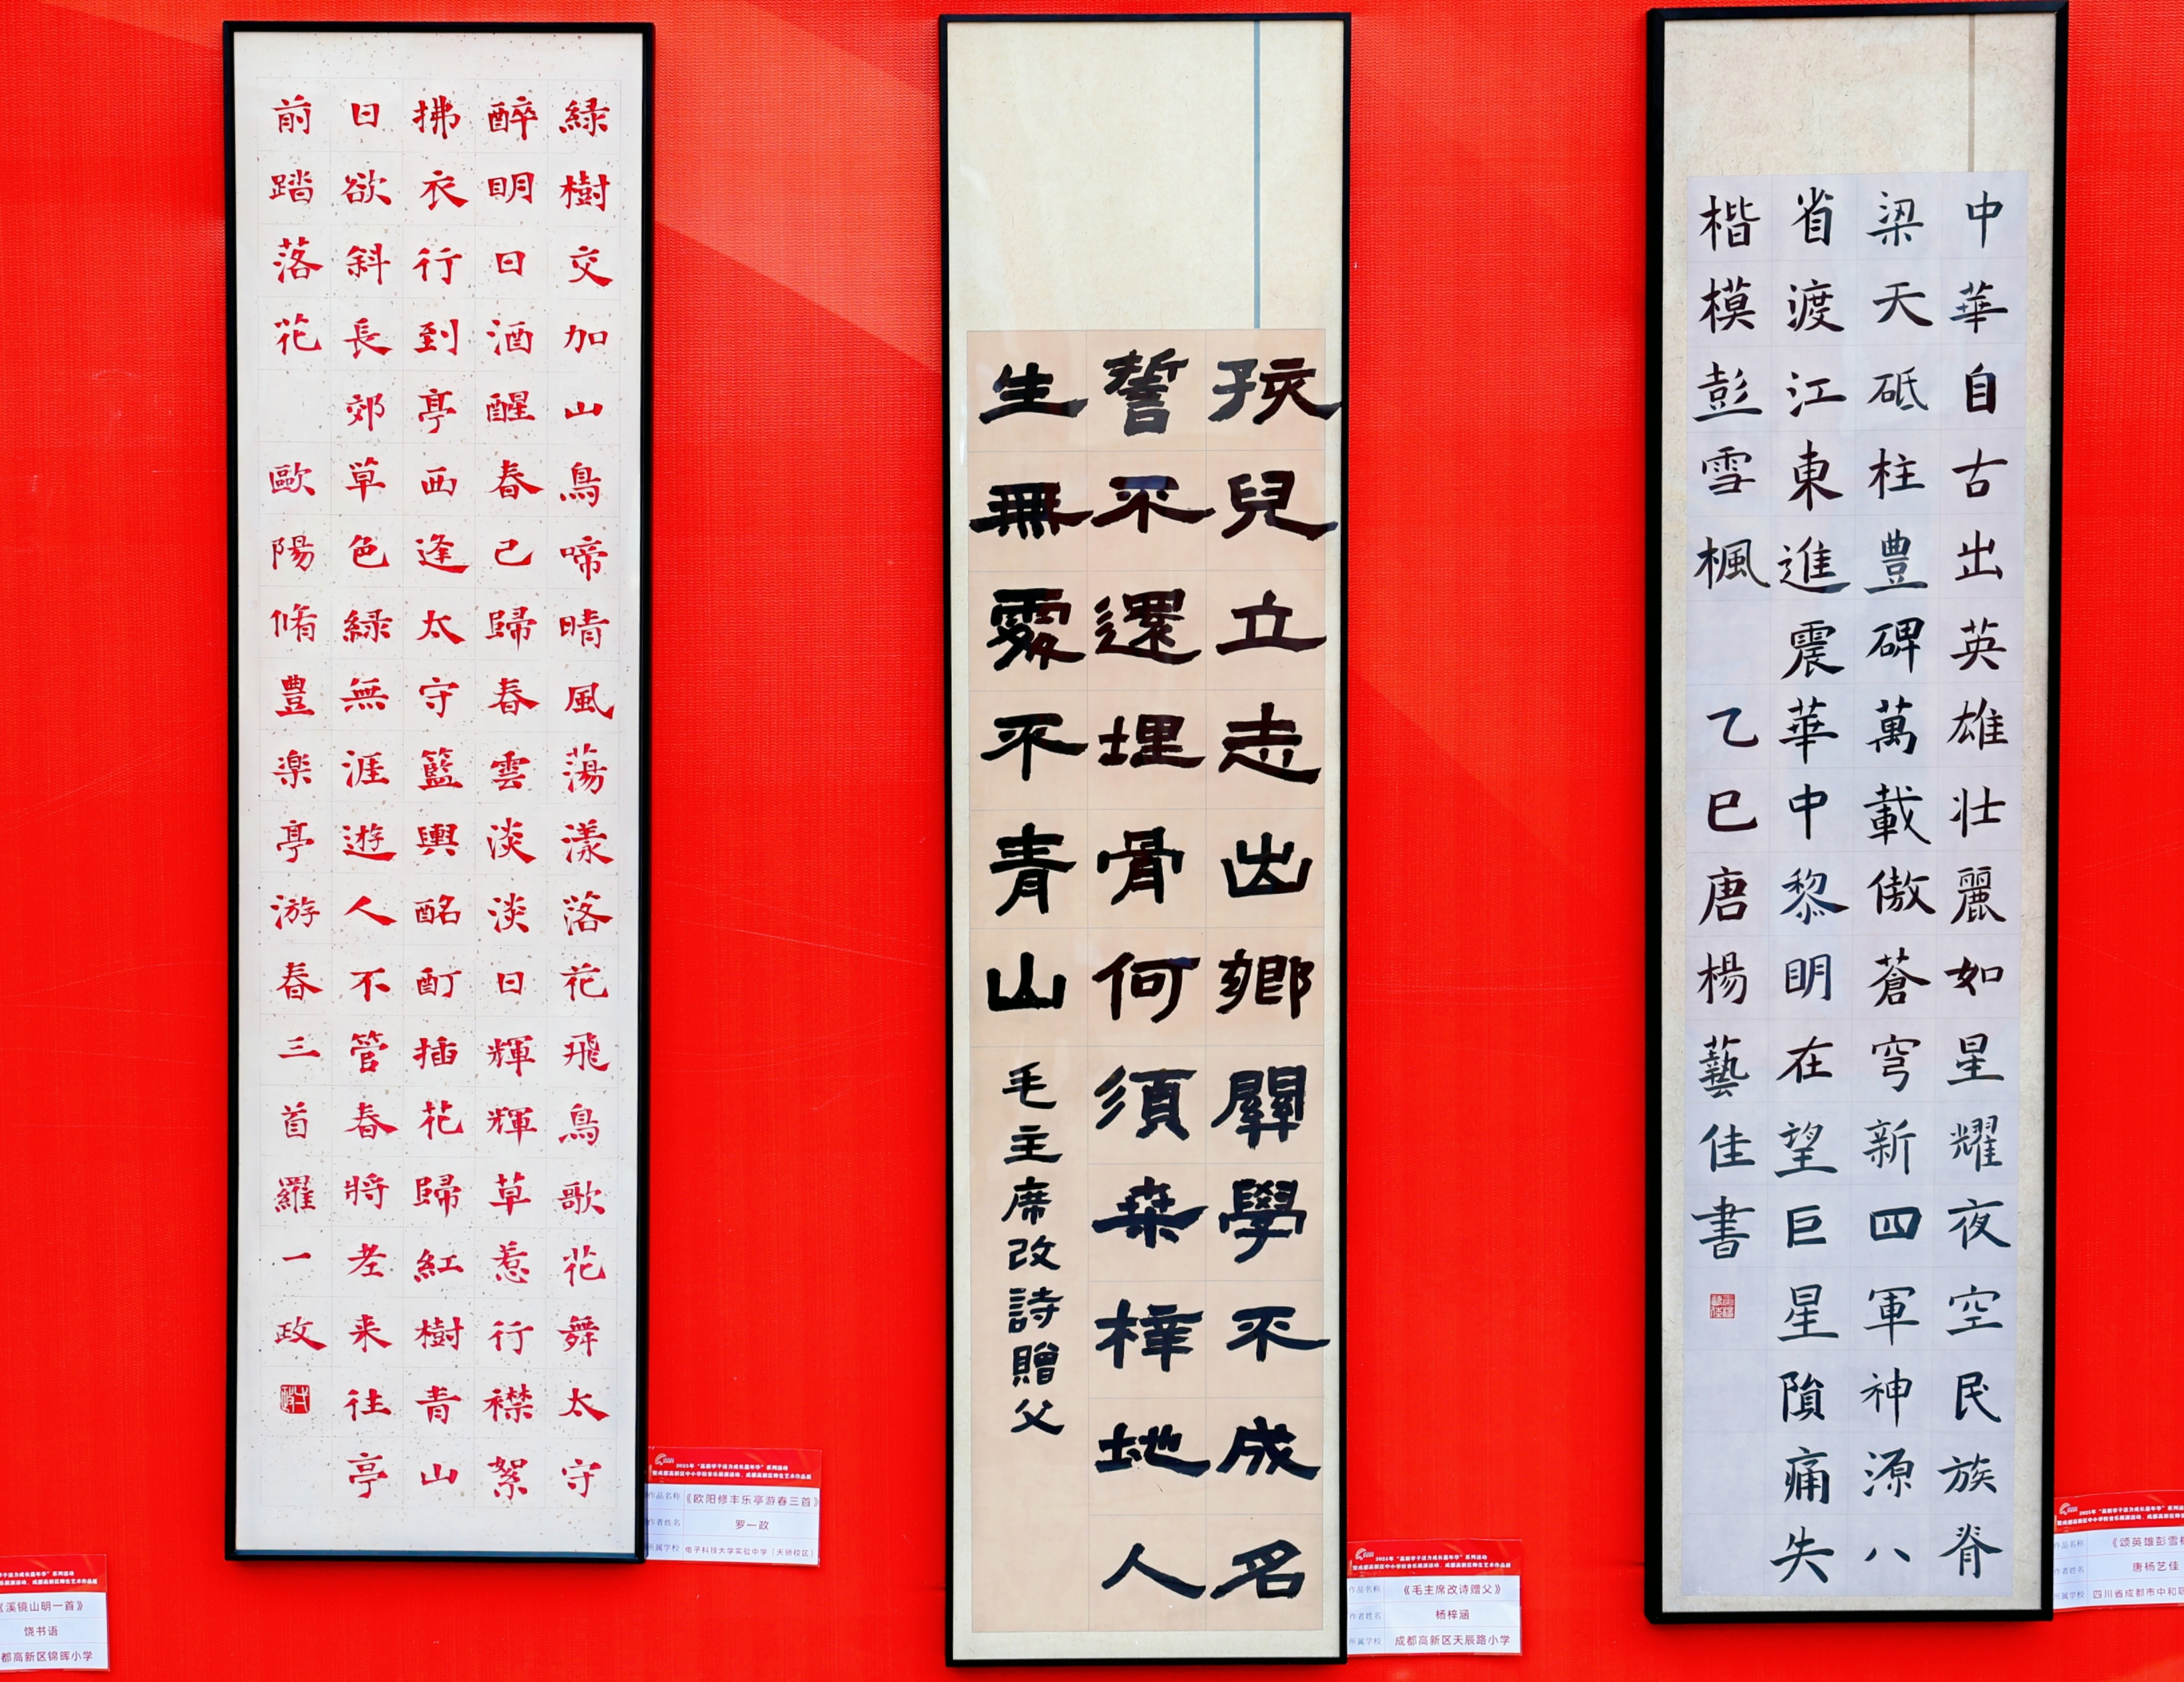 緑樹交加山鳥啼晴風蕩漾落花飛鳥歌花舞太守
醉明日酒醒春已歸春雲淡淡日輝輝草惹行襟絮
拂衣行到亭西逢太守籃輿酩酊插花歸紅樹青山
日欲斜長郊草色緑無涯遊人不管春將老来往亭
前踏落花 歐陽脩豊楽亭游春三首羅一政
作品名称 《欧阳修丰乐亭游春三首》
作者姓名 罗一政
所属学校 电子科技大学实验中学（天骄校区）
孩兒立志出鄉關學不成名
誓不還埋骨何須桑梓地人
生無處不青山 毛主席改詩贈父
作品名称 《毛主席改诗赠父》
作者姓名 杨梓涵
所属学校 成都高新区天辰路小学
中華自古出英雄壯麗如星耀夜空民族脊
梁天砥柱豊碑萬載傲蒼穹新四軍神源八
省渡江東進震華中黎明在望巨星隕痛失
楷模彭雪楓 乙巳唐楊藝佳書
作品名称 《颂英雄彭雪
作者姓名 唐杨艺佳
所属学校 四川省成都市中和
《溪镜山明一首》
饶书语
都高新区锦晖小学